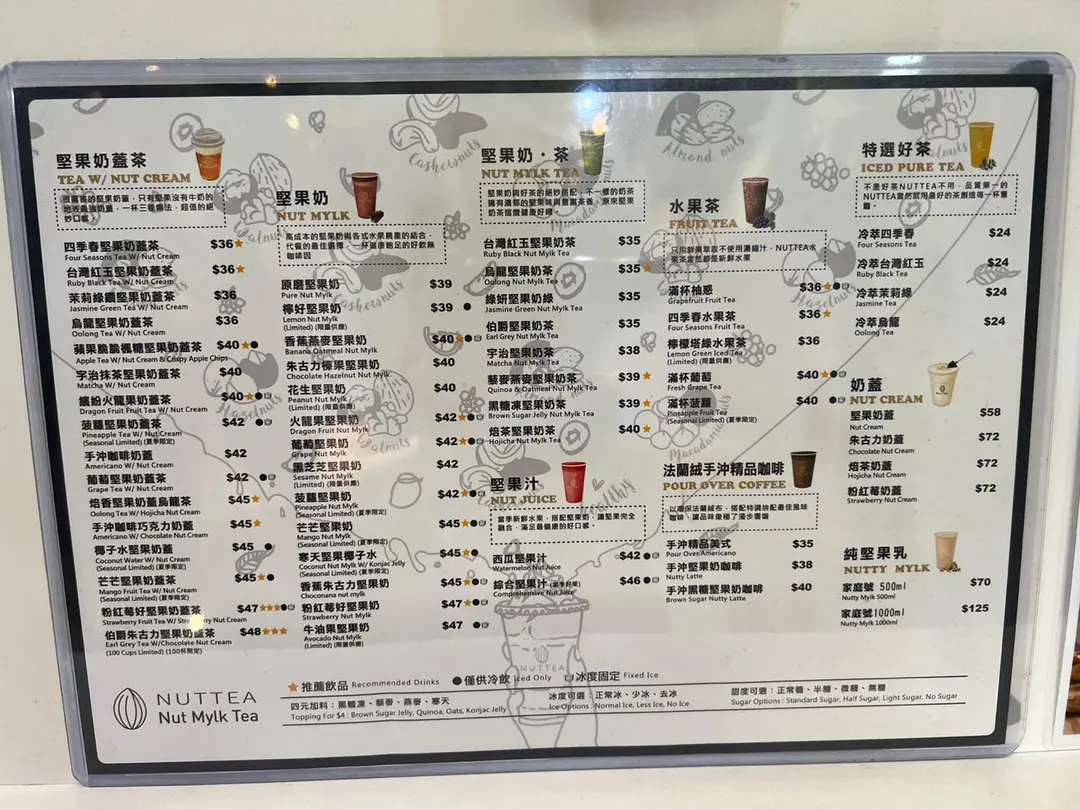 堅果奶蓋茶
TEA W/ NUT CREAM
四季春堅果奶蓋茶 $36
Four Seasons Tea W/ Nut Cream
台灣紅玉堅果奶蓋茶 $36
Ruby Black Tea W/ Nut Cream
茉莉綠鑽堅果奶蓋茶 $36
Jasmine Green Tea W/ Nut Cream
烏龍堅果奶蓋茶 $36
Oolong Tea W/ Nut Cream
蘋果脆脆楓糖堅果奶蓋茶 $40
Apple Tea W/ Nut Cream & Crispy Apple Chips
宇治抹茶堅果奶蓋茶 $40
Matcha W/ Nut Cream
繽紛火龍果奶蓋茶 $40
Dragon Fruit Fruit Tea W/ Nut Cream
菠蘿堅果奶蓋茶 $42
Pineapple Tea W/ Nut Cream
(Seasonal Limited) (夏季限定)
手沖咖啡奶蓋 $42
Americano W/ Nut Cream
葡萄堅果奶蓋茶 $42
Grape Tea W/ Nut Cream
焙香堅果奶蓋烏龍茶 $45
Oolong Tea W/ Hojicha Nut Cream
手沖咖啡巧克力奶蓋 $45
Americano W/ Chocolate Nut Cream
椰子水堅果奶蓋 $45
Coconut Water W/ Nut Cream
(Seasonal Limited) (夏季限定)
芒芒堅果奶蓋茶 $45
Mango Fruit Tea W/ Nut Cream
(Seasonal Limited) (夏季限定)
粉紅莓好堅果奶蓋茶 $47
Strawberry Fruit Tea W/ Strawberry Nut Cream
伯爵朱古力堅果奶蓋茶 $48
Earl Grey Tea W/Chocolate Nut Cream
(100 Cups Limited) (100杯限定)
堅果奶
NUT MYLK
高成本的堅果奶與各式水果農產的結合,
代餐的最佳選擇,一杯健康飽足的好飲無
咖啡因
原磨堅果奶 $39
Pure Nut Mylk
檸好堅果奶 $39
Lemon Nut Mylk
(Limited) (限量供應)
香蕉燕麥堅果奶 $40
Banana Oatmeal Nut Mylk
朱古力榛果堅果奶 $40
Chocolate Hazelnut Nut Mylk
花生堅果奶 $40
Peanut Nut Mylk
(Limited) (限量供應)
火龍果堅果奶 $42
Dragon Fruit Nut Mylk
葡萄堅果奶 $42
Grape Nut Mylk
黑芝芝堅果奶 $42
Sesame Nut Mylk
(Limited) (限量供應)
菠蘿堅果奶 $42
Pineapple Nut Mylk
(Seasonal Limited) (夏季限定)
芒芒堅果奶 $45
Mango Nut Mylk
(Seasonal Limited) (夏季限定)
寒天堅果椰子水 $45
Coconut Nut Mylk W/ Konjac Jelly
(Seasonal Limited) (夏季限定)
香蕉朱古力堅果奶 $45
Choconana nut Mylk
粉紅莓好堅果奶 $47
Strawberry Nut Mylk
牛油果堅果奶 $47
Avocado Nut Mylk
(Limited) (限量供應)
堅果奶・茶
NUT MYLK TEA
堅果奶與好茶的絕妙搭配,不一樣的奶茶
擁有濃郁的堅果味與豐富茶香,原來堅果
奶茶這麼健康好喝。
台灣紅玉堅果奶茶 $35
Ruby Black Nut Mylk Tea
烏龍堅果奶茶 $35
Oolong Nut Mylk Tea
綠妍堅果奶綠 $35
Jasmine Green Nut Mylk Tea
伯爵堅果奶茶 $35
Earl Grey Nut Mylk Tea
宇治堅果奶茶 $38
Matcha Nut Mylk Tea
藜麥燕麥堅果奶茶 $39
Quinoa & Oatmeal Nut Mylk Tea
黑糖凍堅果奶茶 $39
Brown Sugar Jelly Nut Mylk Tea
焙茶堅果奶茶 $40
Hojicha Nut Mylk Tea
堅果汁
NUT JUICE
當季新鮮水果,搭配堅果奶,讓堅果完全
融合,滿足最健康的好口感。
西瓜堅果汁 $42
Watermelon Nut Juice
綜合堅果汁 (當季好果) $46
Comprehensive Nut Juice
水果茶
FRUIT TEA
只用鮮果萃取不使用濃縮汁,NUTTEA水
果茶當然都是新鮮水果
滿杯柚惑 $36
Grapefruit Fruit Tea
四季春水果茶 $36
Four Seasons Fruit Tea
檸檬塔綠水果茶 $36
Lemon Green Iced Tea
(Limited) (限量供應)
滿杯葡萄 $40
Fresh Grape Tea
滿杯菠蘿 $40
Pineapple Fruit Tea
(Seasonal Limited) (夏季限定)
法蘭絨手沖精品咖啡
POUR OVER COFFEE
手沖精品美式 $35
Pour Over Americano
手沖堅果奶咖啡 $38
Nutty Latte
手沖黑糖堅果奶咖啡 $40
Brown Sugar Nutty Latte
特選好茶
ICED PURE TEA
不是好茶NUTTEA不用,品質第一的
NUTTEA當然就用最好的茶創造每一杯驚
豔。
冷萃四季春 $24
Four Seasons Tea
冷萃台灣紅玉 $24
Ruby Black Tea
冷萃茉莉綠 $24
Jasmine Tea
冷萃烏龍 $24
Oolong Tea
奶蓋
NUT CREAM
堅果奶蓋 $58
Nut Cream
朱古力奶蓋 $72
Chocolate Nut Cream
焙茶奶蓋 $72
Hojicha Nut Cream
粉紅莓奶蓋 $72
Strawberry Nut Cream
純堅果乳
NUTTY MYLK
家庭號 500ml $70
Nutty Mylk 500ml
家庭號1000ml $125
Nutty Mylk 1000ml
Cashewnuts
Almond nuts
Walnuts
Cashewnuts
Hazelnuts
Hazelnuts
Walnuts
Macadamia
Macadamia
healthy
NUTTEA
NUTTEA
Nut Mylk Tea
★推薦飲品 Recommended Drinks ●僅供冷飲 Iced Only 冰度固定 Fixed Ice
四元加料:黑糖凍、藜麥、燕麥、寒天
Topping For $4 : Brown Sugar Jelly, Quinoa, Oats, Konjac Jelly
冰度可選:正常冰、少冰、去冰
Ice Options : Normal Ice, Less Ice, No Ice
甜度可選:正常糖、半糖、微糖、無糖
Sugar Options : Standard Sugar, Half Sugar, Light Sugar, No Sugar